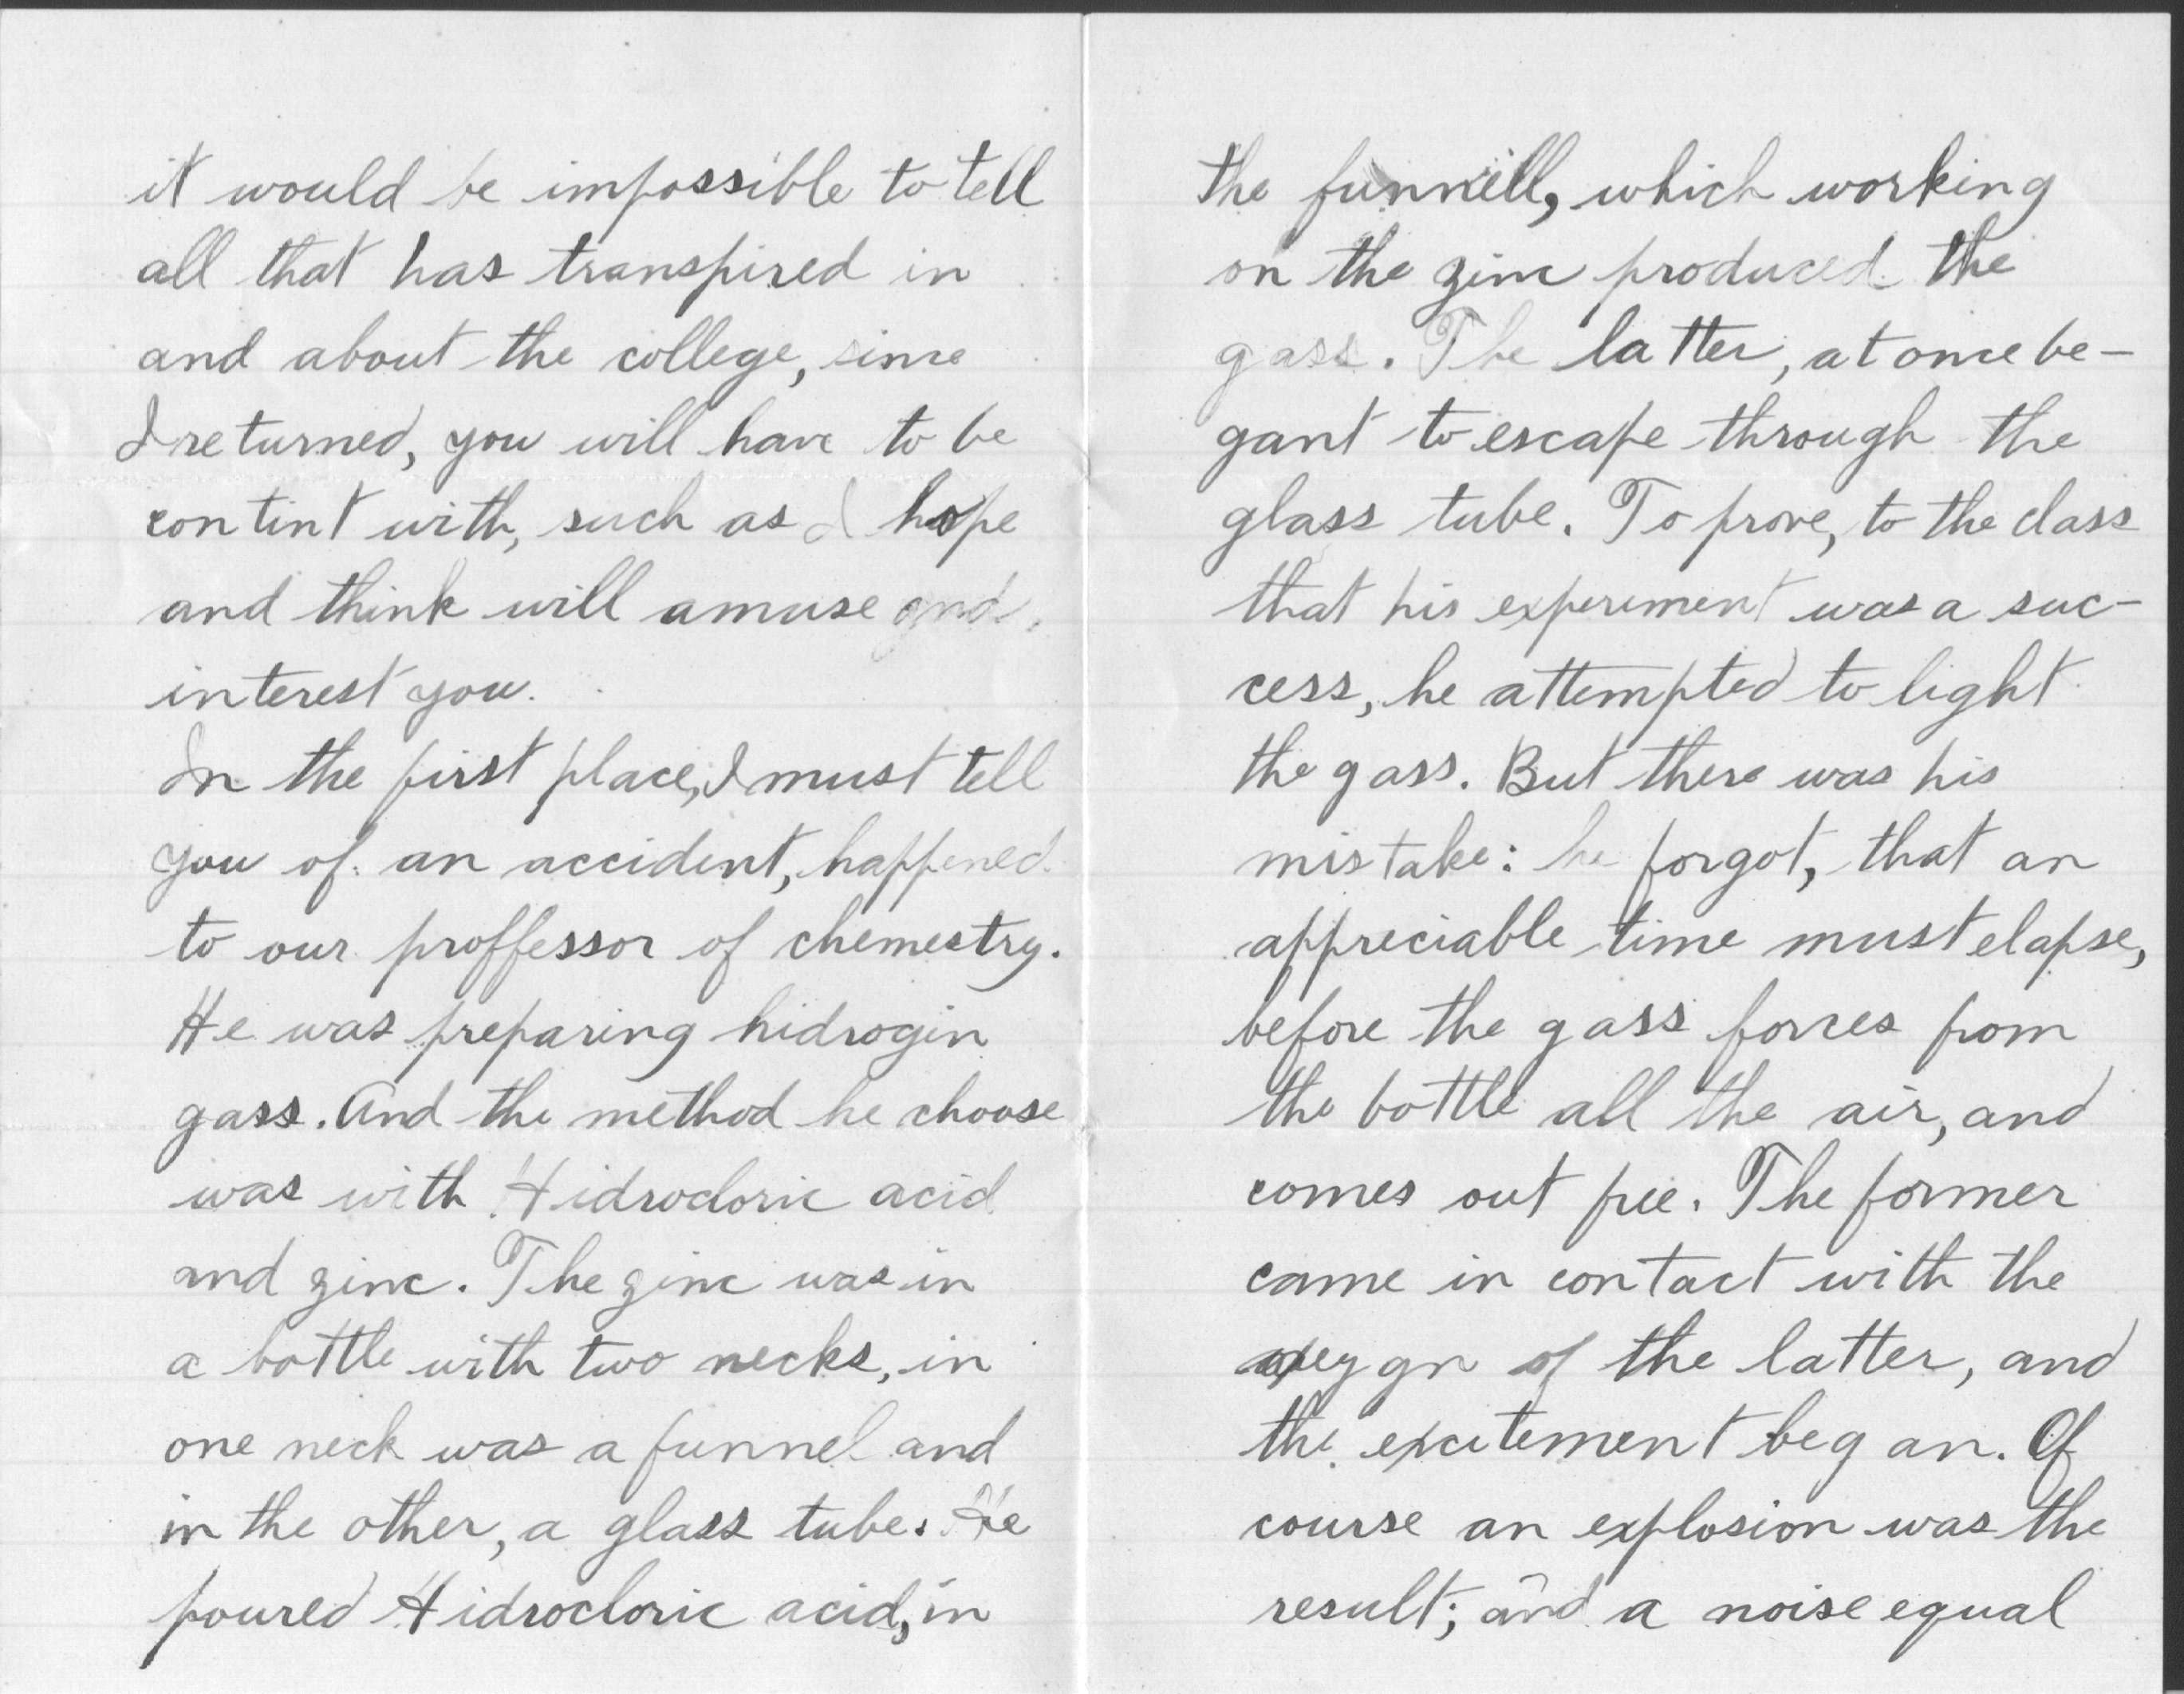 it would be impossible to tell
all that has transpired in
and about the college, since
I returned, you will have to be
contint with, such as I hope
and think will amuse and
interest you.
In the first place, I must tell
you of an accident, happened
to our proffessor of chemestry.
He was preparing hidrogin
gass. And the method he choose
was with Hidrocloric acid
and zinc. The zinc was in
a bottle with two necks, in
one neck was a funnel and
in the other, a glass tube. He
poured Hidrocloric acid, in
the funnell, which working
on the zinc produced the
gass. The latter, at once be-
gant to escape through the
glass tube. To prove, to the class
that his experiment was a suc-
cess, he attempted to light
the gass. But there was his
mistake: he forgot, that an
appreciable time must elapse,
before the gass forces from
the bottle all the air, and
comes out free. The former
came in contact with the
of the latter, and
the excitement began. Of
course an explosion was the
result; and a noise equal